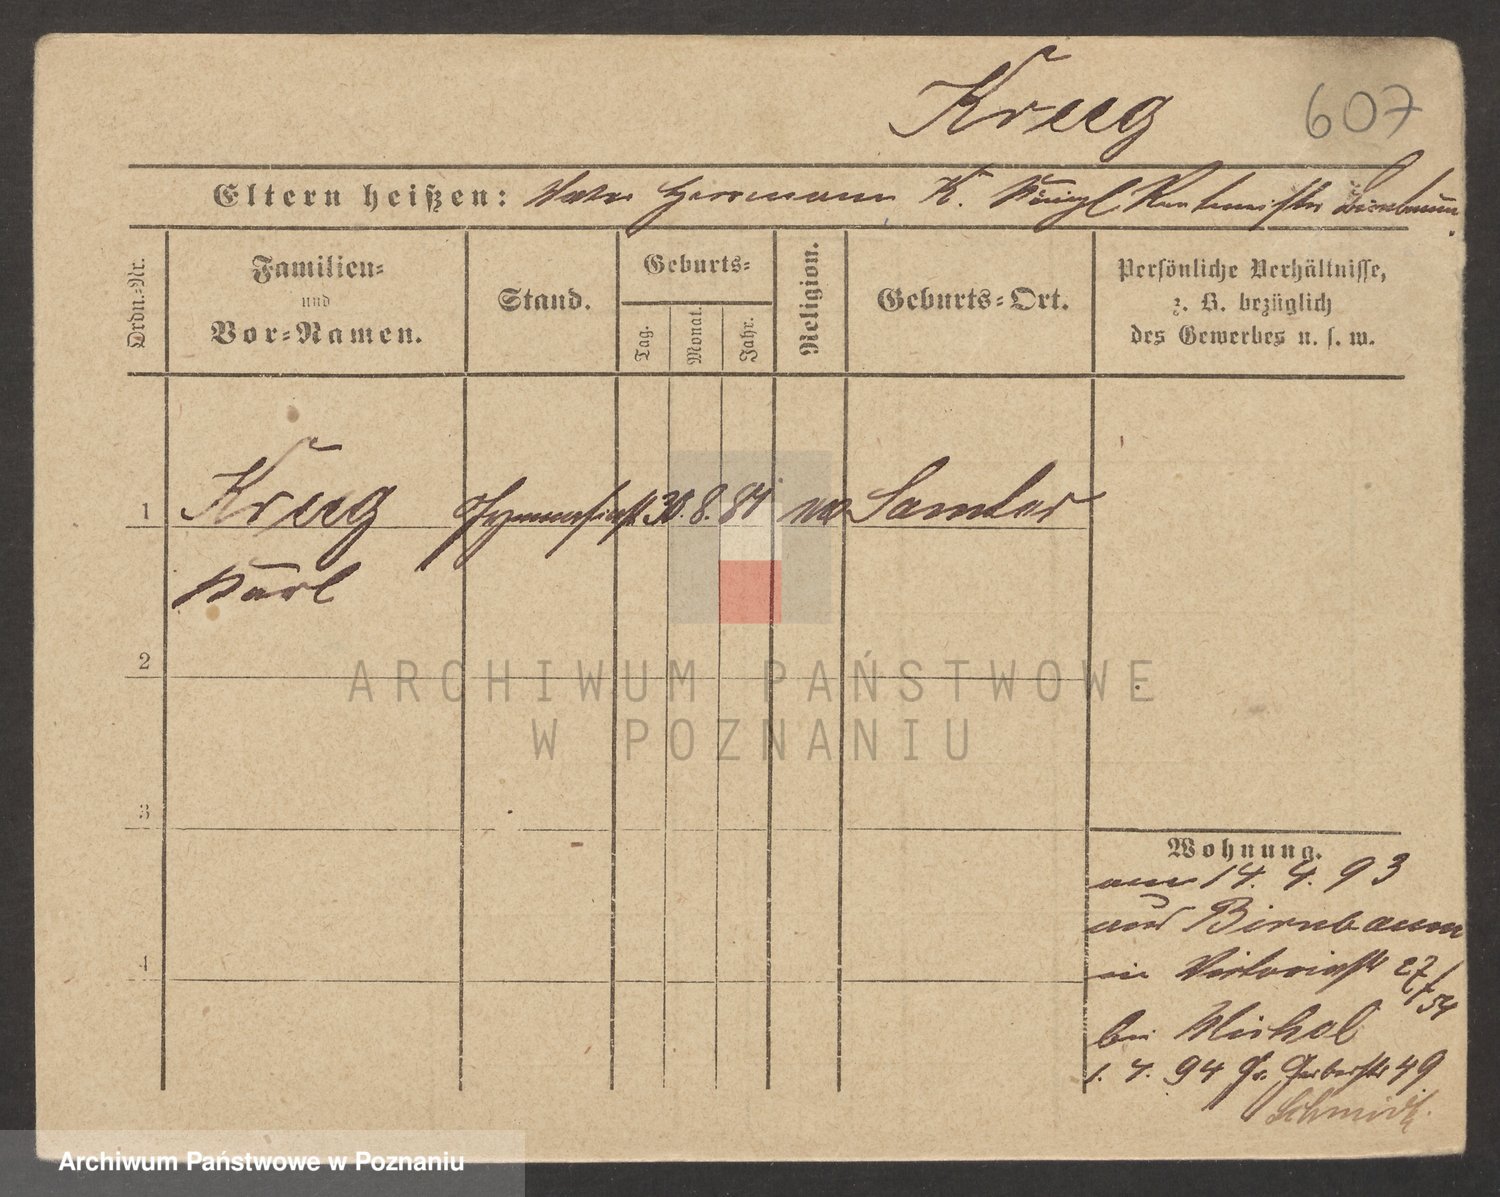 Krug 607
Eltern heißen: Vater Herrmann K. Königl. Rentmeister Birnbaum.
Ordn.-Nr.
Familien-
und
Vor-Namen.
Stand.
Geburts-
Tag.
Monat.
Jahr.
Religion.
Geburts-Ort.
Persönliche Verhältnisse,
z. B. bezüglich
des Gewerbes u. s. w.
1 Krug Gymnasiast 30. 8. 81 Samter
Karl
2
3
4
Wohnung.
am 14. 4. 93
aus Birnbaum
in Victoriastr 27/54
bei Michal
1. 4. 94 Gr. Gerberstr 49
Schmidt.
ARCHIWUM PAŃSTWOWE
W POZNANIU
Archiwum Państwowe w Poznaniu